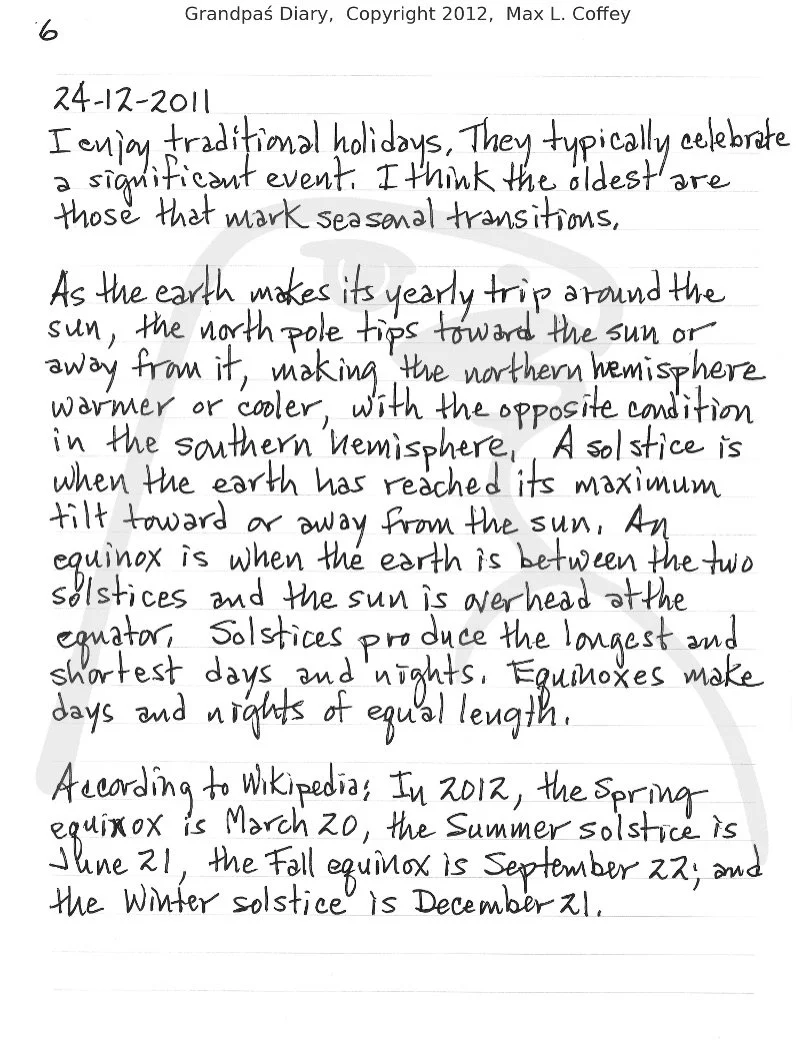 Grandpaś Diary, Copyright 2012, Max L. Coffey
6
24-12-2011
I enjoy traditional holidays. They typically celebrate
a significant event. I think the oldest are
those that mark seasonal transitions.
As the earth makes its yearly trip around the
sun, the north pole tips toward the sun or
away from it, making the northern hemisphere
warmer or cooler, with the opposite condition
in the southern hemisphere. A solstice is
when the earth has reached its maximum
tilt toward or away from the sun. An
equinox is when the earth is between the two
solstices and the sun is overhead at the
equator. Solstices produce the longest and
shortest days and nights. Equinoxes make
days and nights of equal length.
According to Wikipedia; In 2012, the Spring
equinox is March 20, the Summer solstice is
June 21, the Fall equinox is September 22; and
the Winter solstice is December 21.